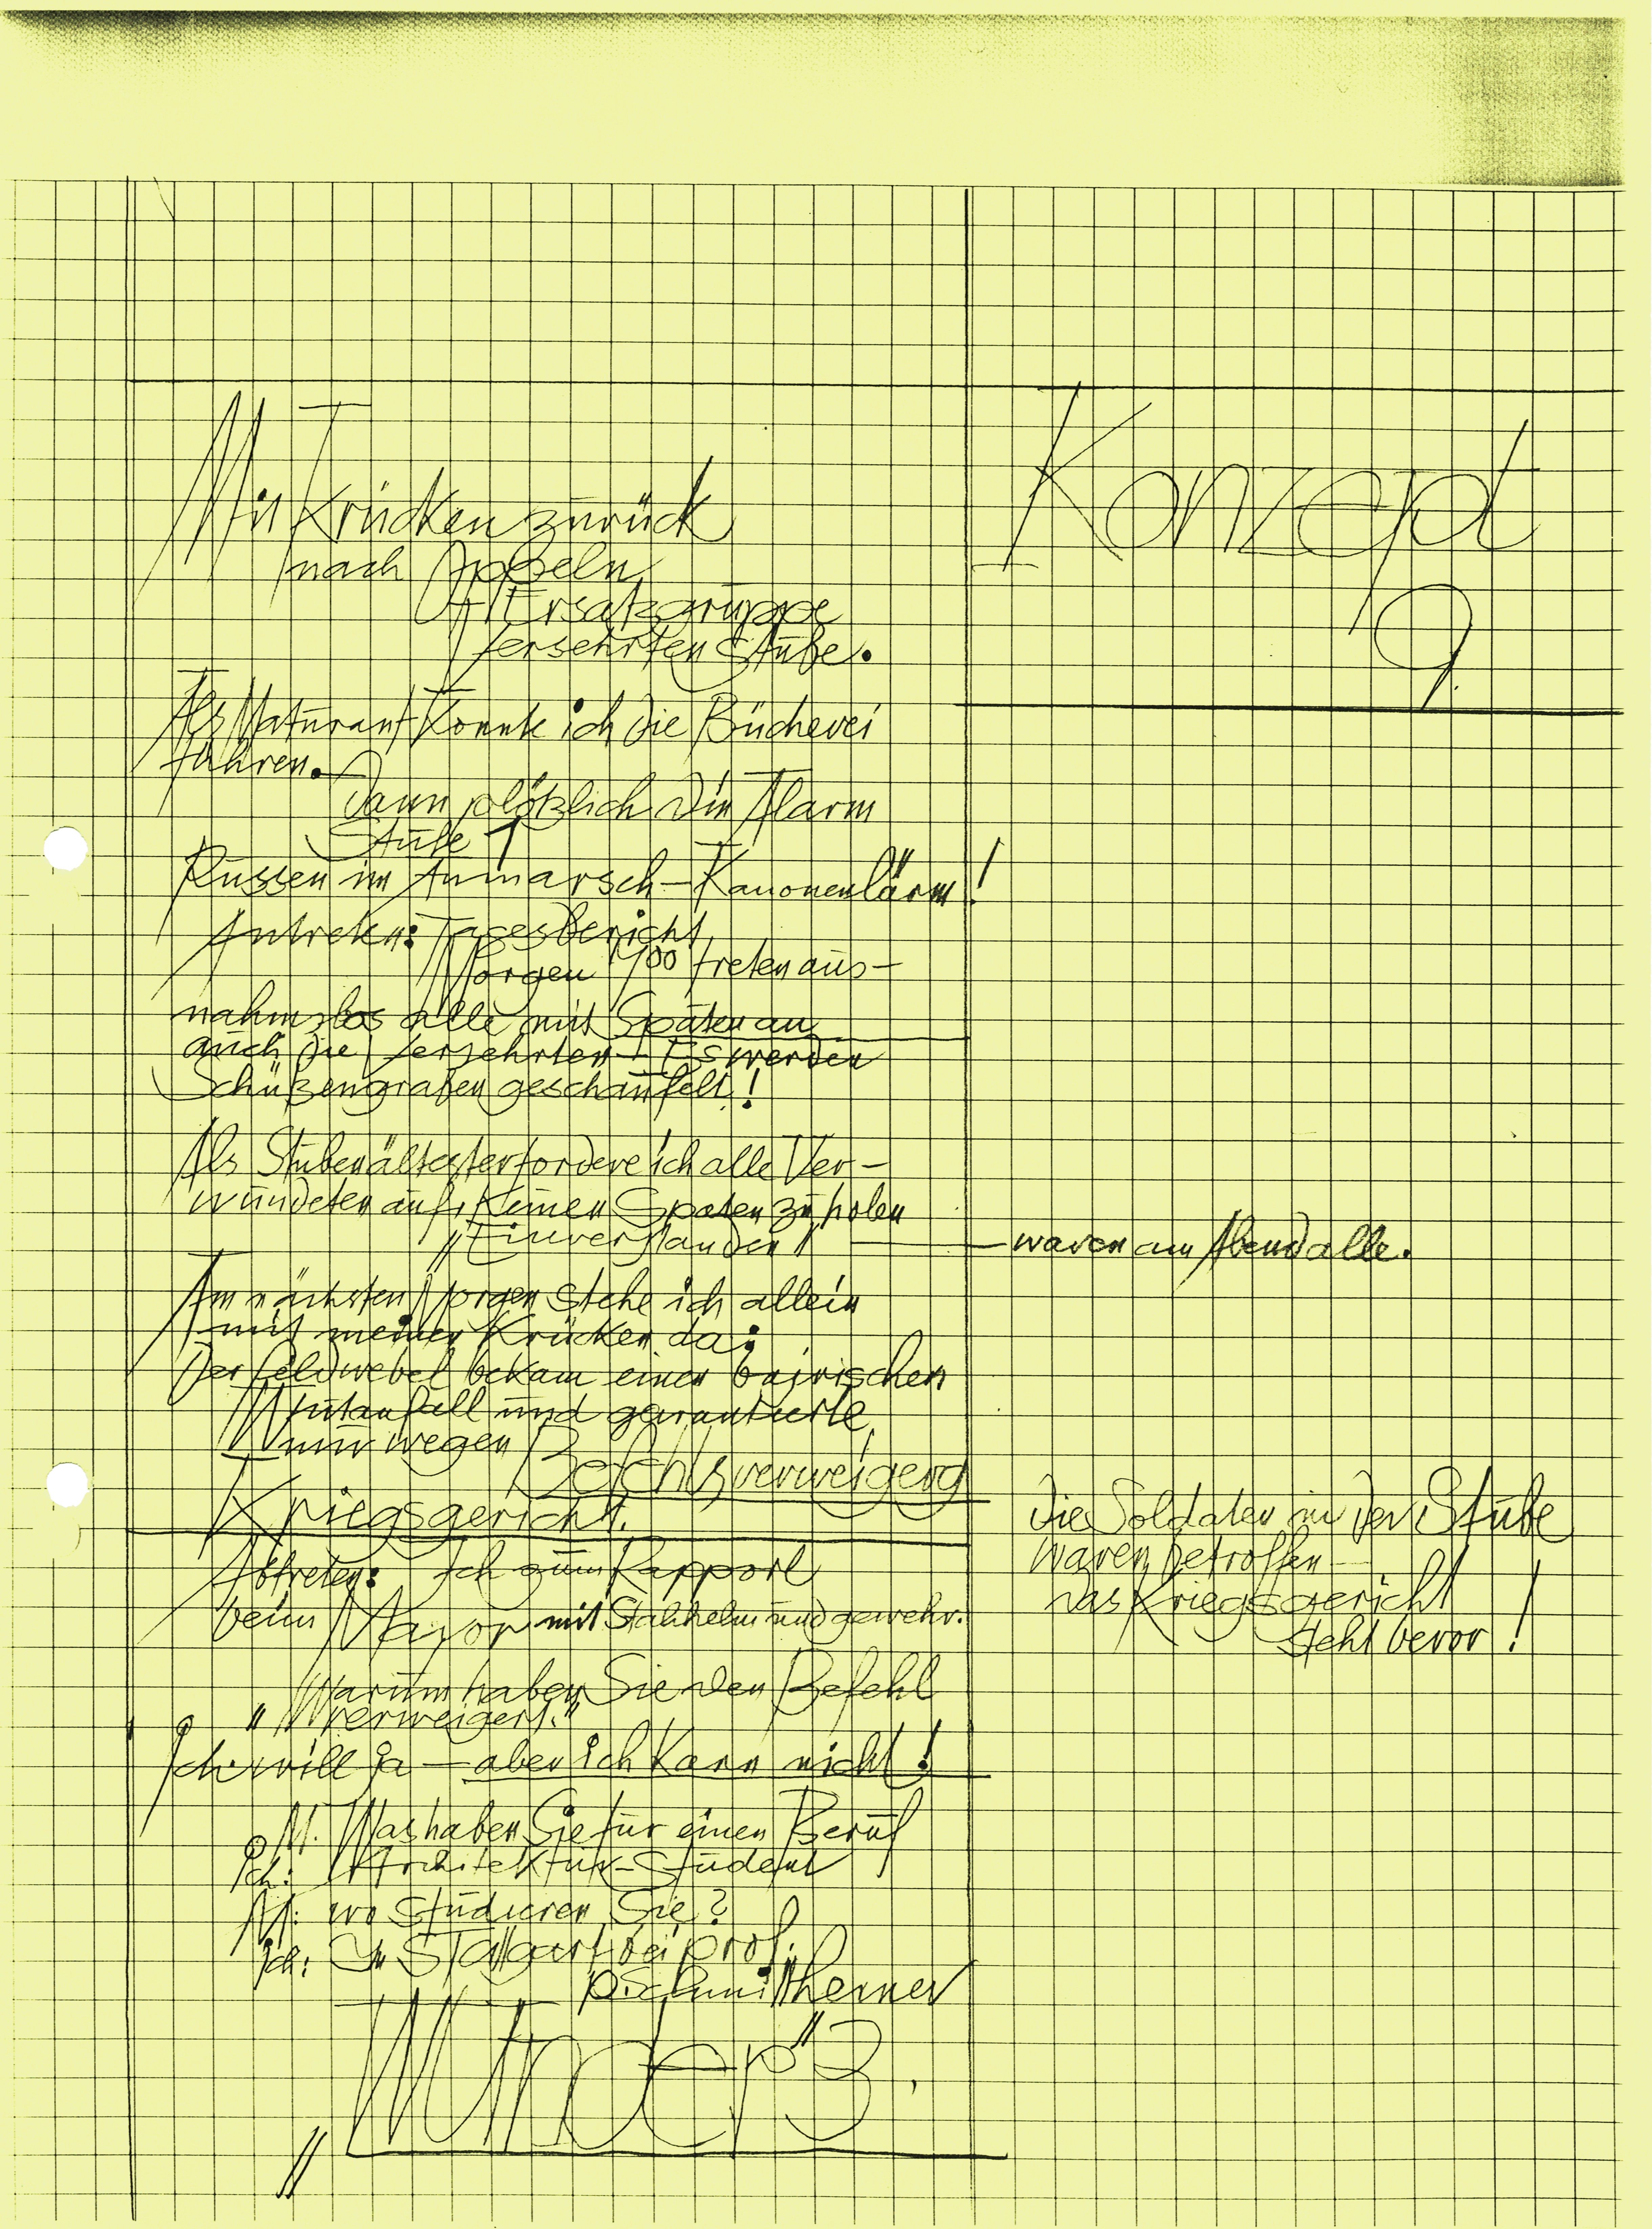 Konzept
9
Mit Krücken zurück
nach Oppeln
Ersatzgruppe
Versehrten Stube.
Als Maturant konnte ich die Bücherei
führen.
Dann plötzlich Alarm
Stufe 1
Russen im Anmarsch – Kanonenlärm!
Antreten: Tagesbericht
Morgen 7⁰⁰ treten aus-
nahmslos alle mit Spaten an
auch die Versehrten – Es werden
Schützengraben geschaufelt!
Als Stubenältester fordere ich alle Ver-
wundeten auf, keinen Spaten zu holen
"Einverstanden" — waren am Abend alle.
Am nächsten Morgen stehe ich allein
mit meinen Krücken da;
Der Feldwebel bekam einen bairischen
Wutanfall und garantierte
nur wegen
Befehlsverweigerg
Kriegsgericht.
Die Soldaten in der Stube
waren betroffen –
das Kriegsgericht
steht bevor!
Abtreten: Ich zum Rapport
beim Mayor mit Stahlhelm und gewehr.
"Warum haben Sie den Befehl
verweigert."
Ich will ja – aber ich kann nicht!
M. Was haben Sie für einen Beruf
Ich: Architektur-Student
M: wo studieren Sie?
ich: In bei Prof.
P. Schmitthenner